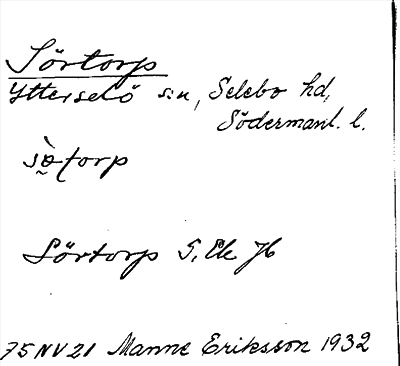 Sörtorp
Ytterselö s:n, Selebo hd,
Södermanl. l.
Sörtorp G. Ek. Jb
75 NV 21 Manne Eriksson 1932